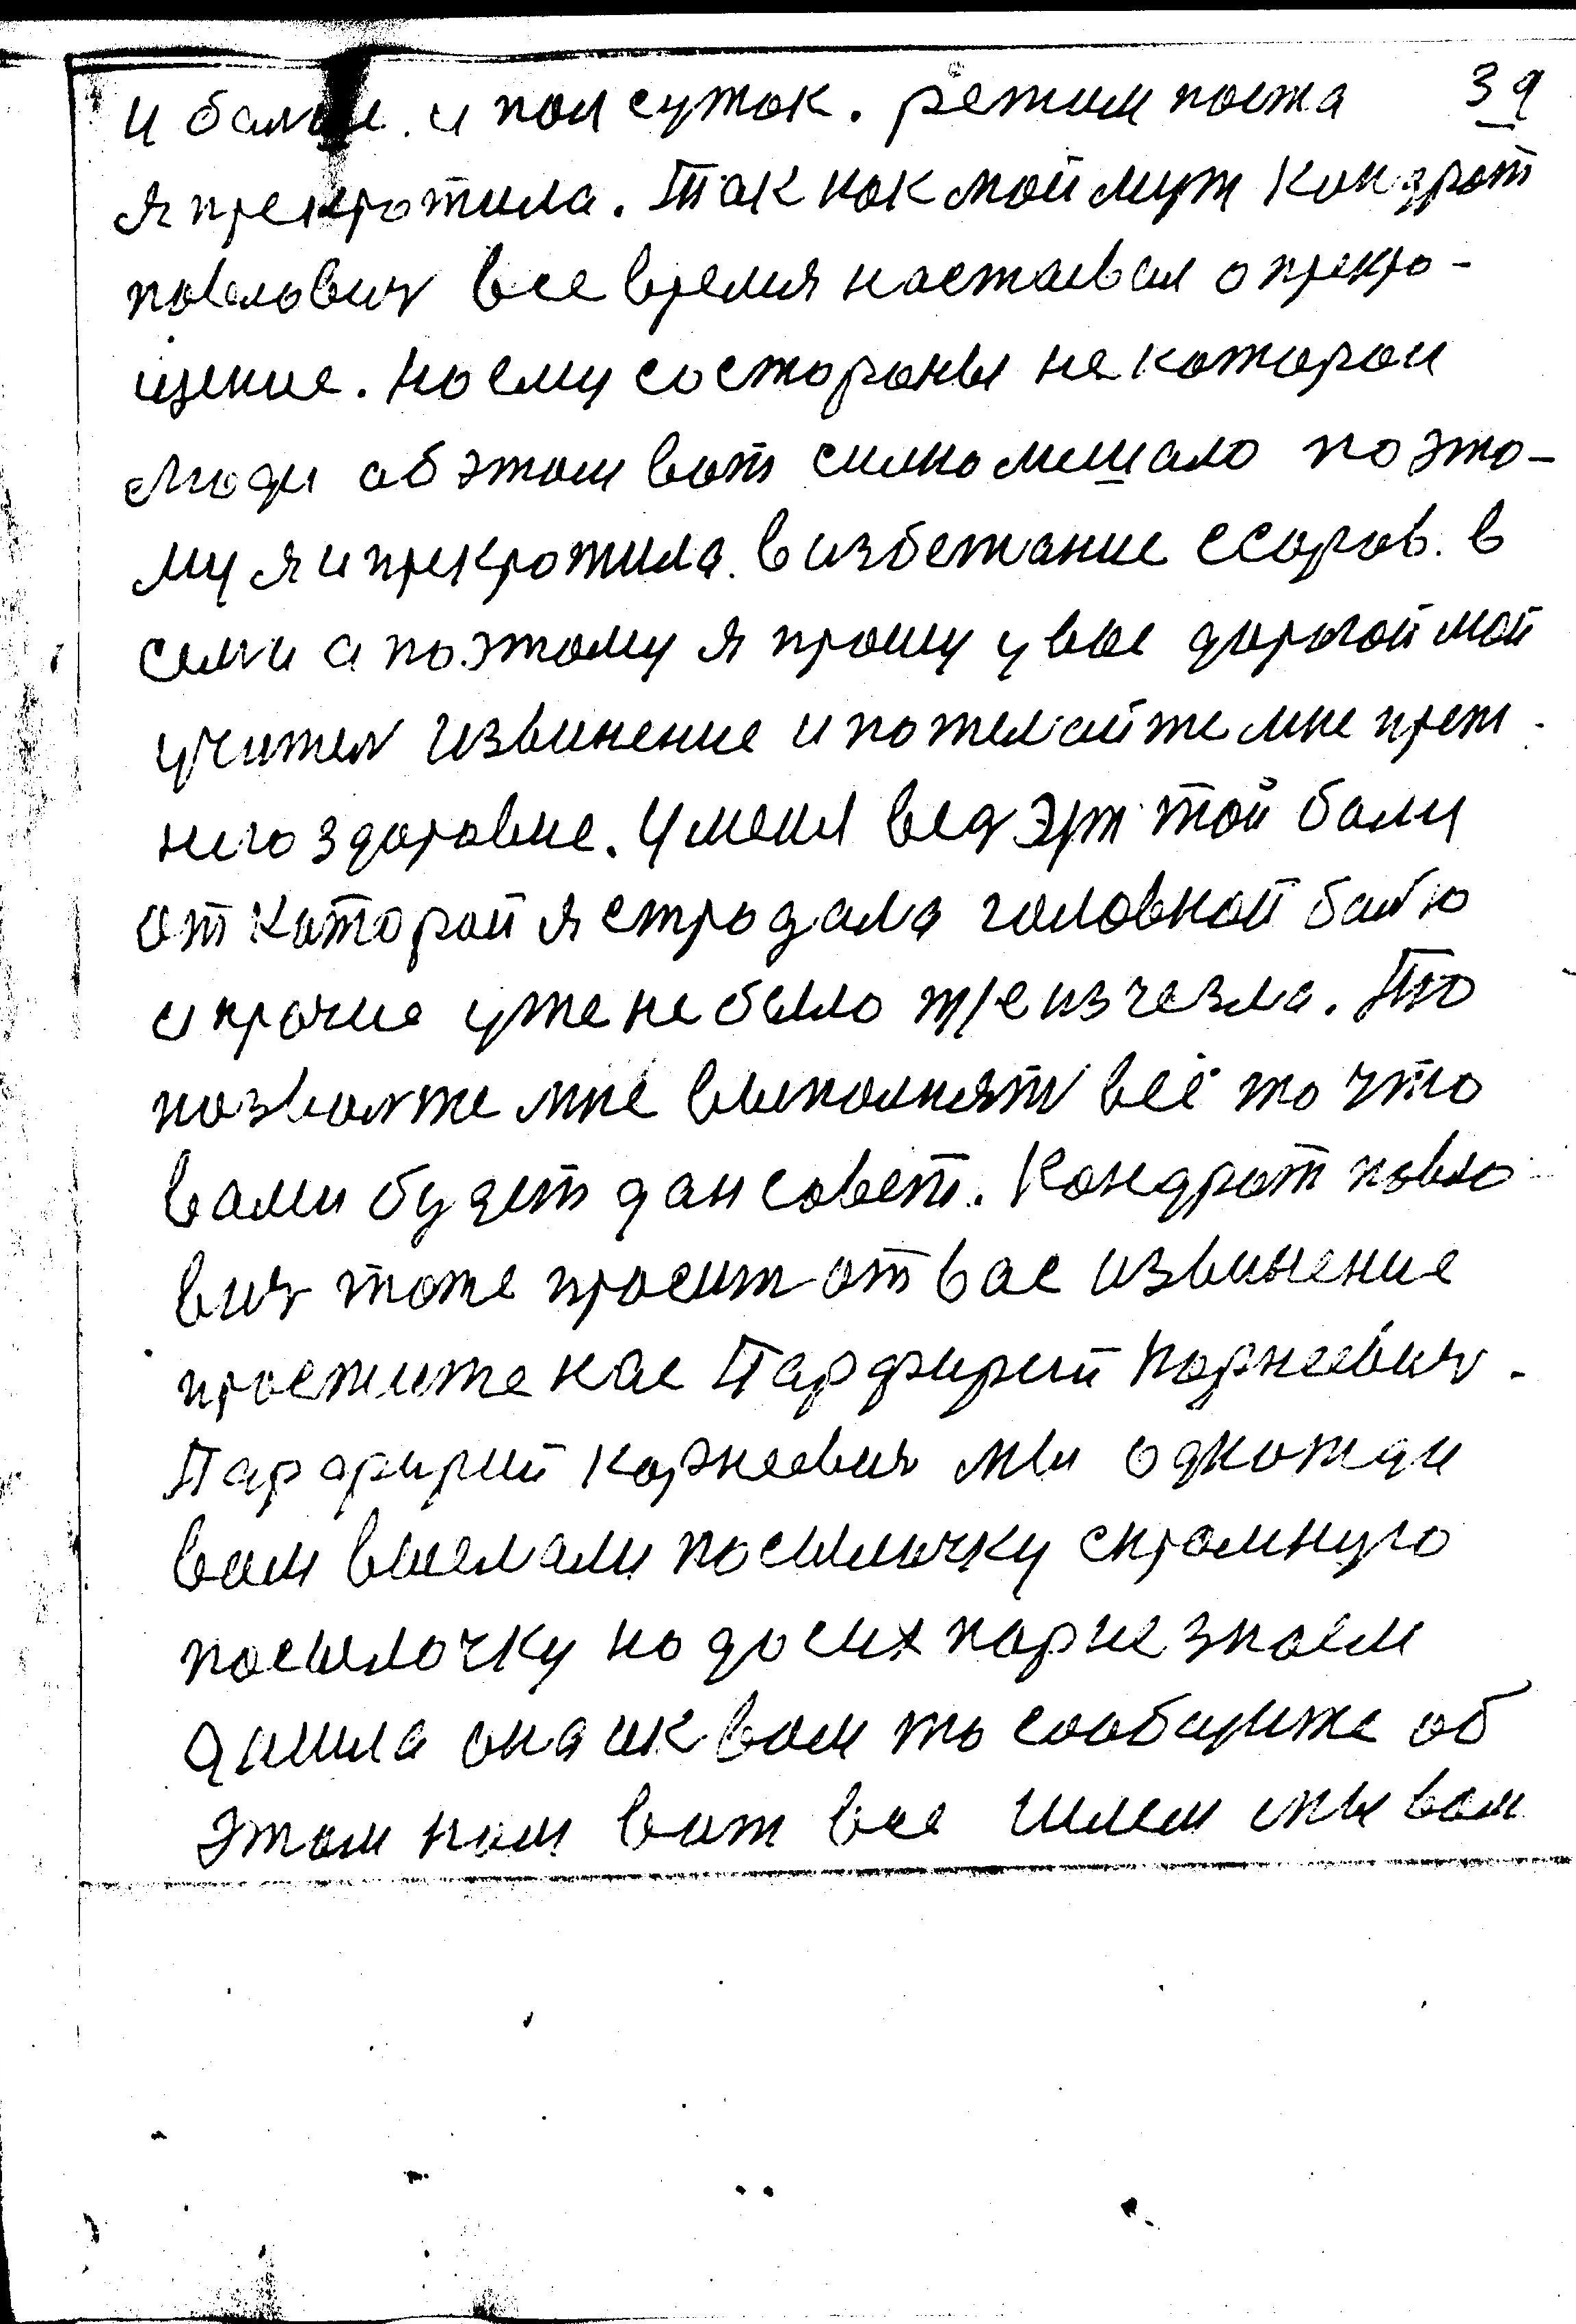 и более и пол суток. режим поста 39
я прекротила. Так как мой муж Кондрат
повлович все время настаевал о прекро-
щение. но ему состороны некоторои
люди об этом вот силно мешало поэто-
му я и прекротила. визбежание ссоров. в
семи а поэтому я прошу у вас дорогой мой
учител извинение и пожелайте мне преж-
него здоровие. у меня вед эт той боли
от которой я стродала головной болю
и прочие уже не было же изчезла. То
позволте мне выполнять всё то что
вами будет дан совет. Кондрат повло
вич тоже просит от вас извинение
простите нас Парфирий Корнеевич.
Парфирий Корнеевич мы одножди
вам выслали посылочку скромную
посылочку но до сих пор не знаем
дишла она ик вам то сообщите об
этом нам вот все шлем мы вам